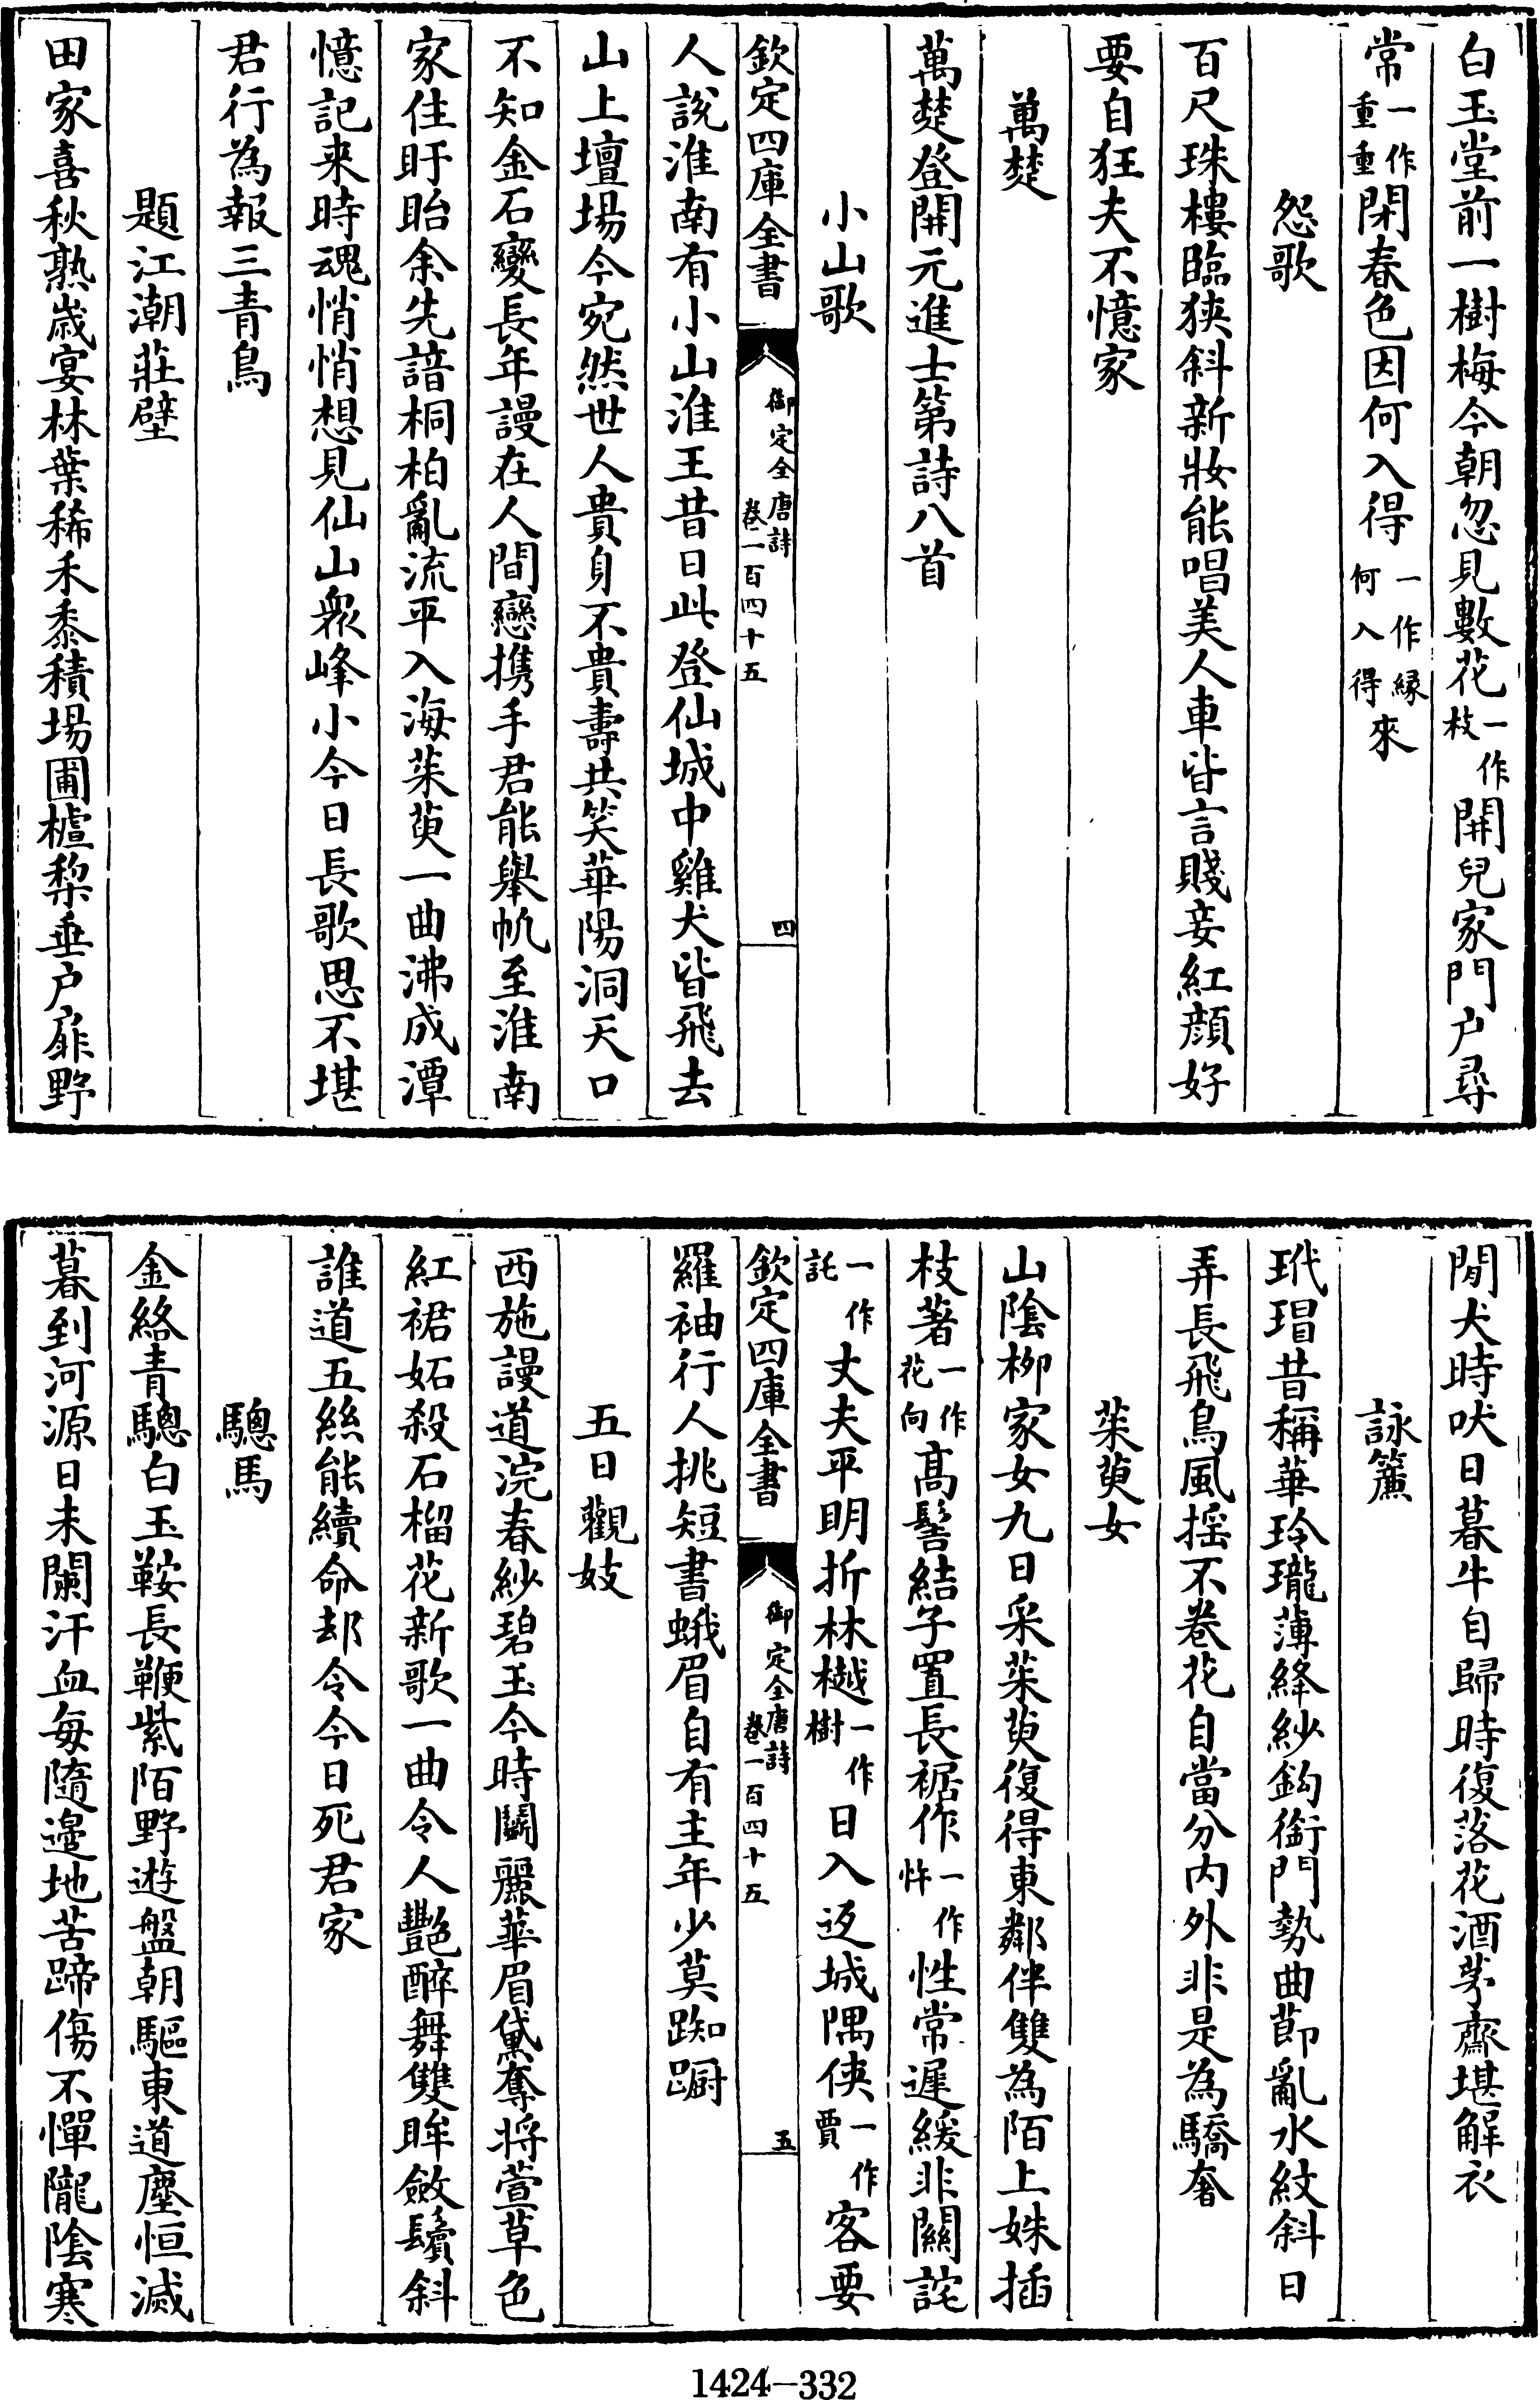 白玉堂前一樹梅今朝忽見數花一作枝開兒家門户尋
常一作重重閉春色因何入得一作縁何入得來
怨歌
百尺珠樓臨狹斜新妝能唱美人車皆言賤妾紅顔好
要自狂夫不憶家
萬楚
萬楚登開元進士第詩八首
小山歌
欽定四庫全書 御定全唐詩 卷一百四十五 四
人說淮南有小山淮王昔日此登仙城中雞犬皆飛去
山上壇場今宛然世人貴身不貴壽共笑華陽洞天口
不知金石變長年謾在人間戀携手君能舉帆至淮南
家住盱眙余先諳桐柏亂流平入海茱萸一曲沸成潭
憶記来時魂悄悄想見仙山衆峰小今日長歌思不堪
君行為報三青鳥
題江潮莊壁
田家喜秋熟歲宴林葉稀禾黍積場圃樝梨垂户扉野
閒犬時吠日暮牛自歸時復落花酒茅齋堪解衣
詠簾
玳瑁昔稱華玲瓏薄絳紗鈎銜門勢曲節亂水紋斜日
弄長飛鳥風揺不卷花自當分内外非是為驕奢
茱萸女
山隂栁家女九日采茱萸復得東鄰伴雙為陌上姝插
枝著一作花向高髻結子置長裾作一作忤性常遲緩非關詫
一作託丈夫平明折林樾一作樹日入返城隅俠一作賈客要
欽定四庫全書 御定全唐詩 卷一百四十五 五
羅袖行人挑短書蛾眉自有主年少莫踟蹰
五日觀妓
西施謾道浣春紗碧玉今時鬭麗華眉黛奪将萱草色
紅裙妬殺石榴花新歌一曲令人豔醉舞雙眸斂鬢斜
誰道五絲能續命却令今日死君家
驄馬
金絡青驄白玉鞍長鞭紫陌野遊盤朝驅東道塵恒滅
暮到河源日未闌汗血毎隨邊地苦蹄傷不憚隴隂寒
1424—332